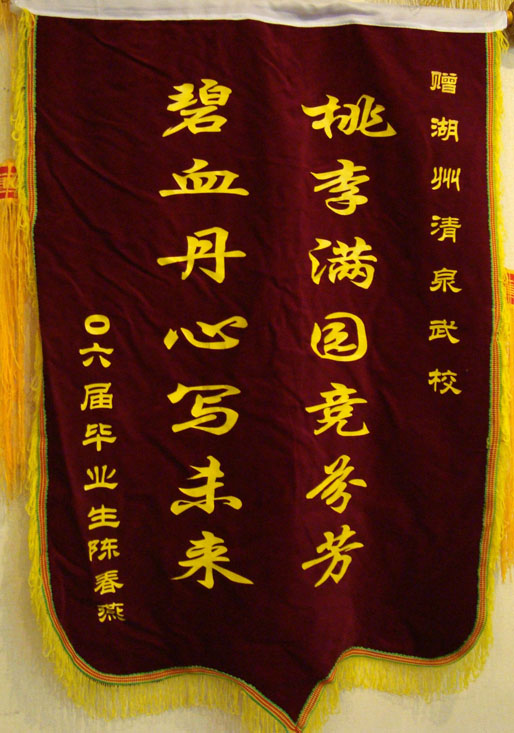 赠湖州清泉武校
桃李满园竞芬芳
碧血丹心写未来
〇六届毕业生陈春燕